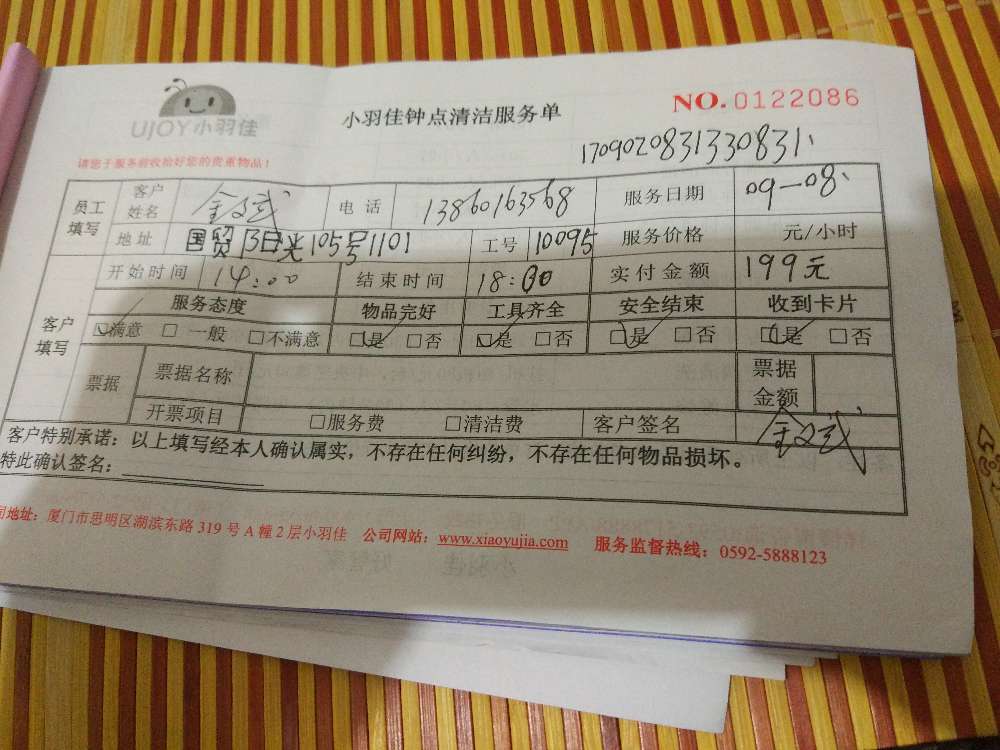 UJOY小羽佳
小羽佳钟点清洁服务单
NO.0122086
请您于服务前收拾好您的贵重物品！
170902083133 0831
员工填写 客户姓名 金文斌 电话 13860163568 服务日期 09-08
地址 国贸阳光105号1101 工号 10095 服务价格 元/小时
客户填写 开始时间 14:00 结束时间 18:00 实付金额 199元
服务态度 物品完好 工具齐全 安全结束 收到卡片
☑满意 □一般 □不满意 ☑是 □否 ☑是 □否 ☑是 □否 ☑是 □否
票据 票据名称 票据金额
开票项目 □服务费 □清洁费 客户签名 金文斌
客户特别承诺：以上填写经本人确认属实，不存在任何纠纷，不存在任何物品损坏。
特此确认签名：
司地址：厦门市思明区湖滨东路319号A幢2层小羽佳 公司网站：www.xiaoyujia.com 服务监督热线：0592-5888123